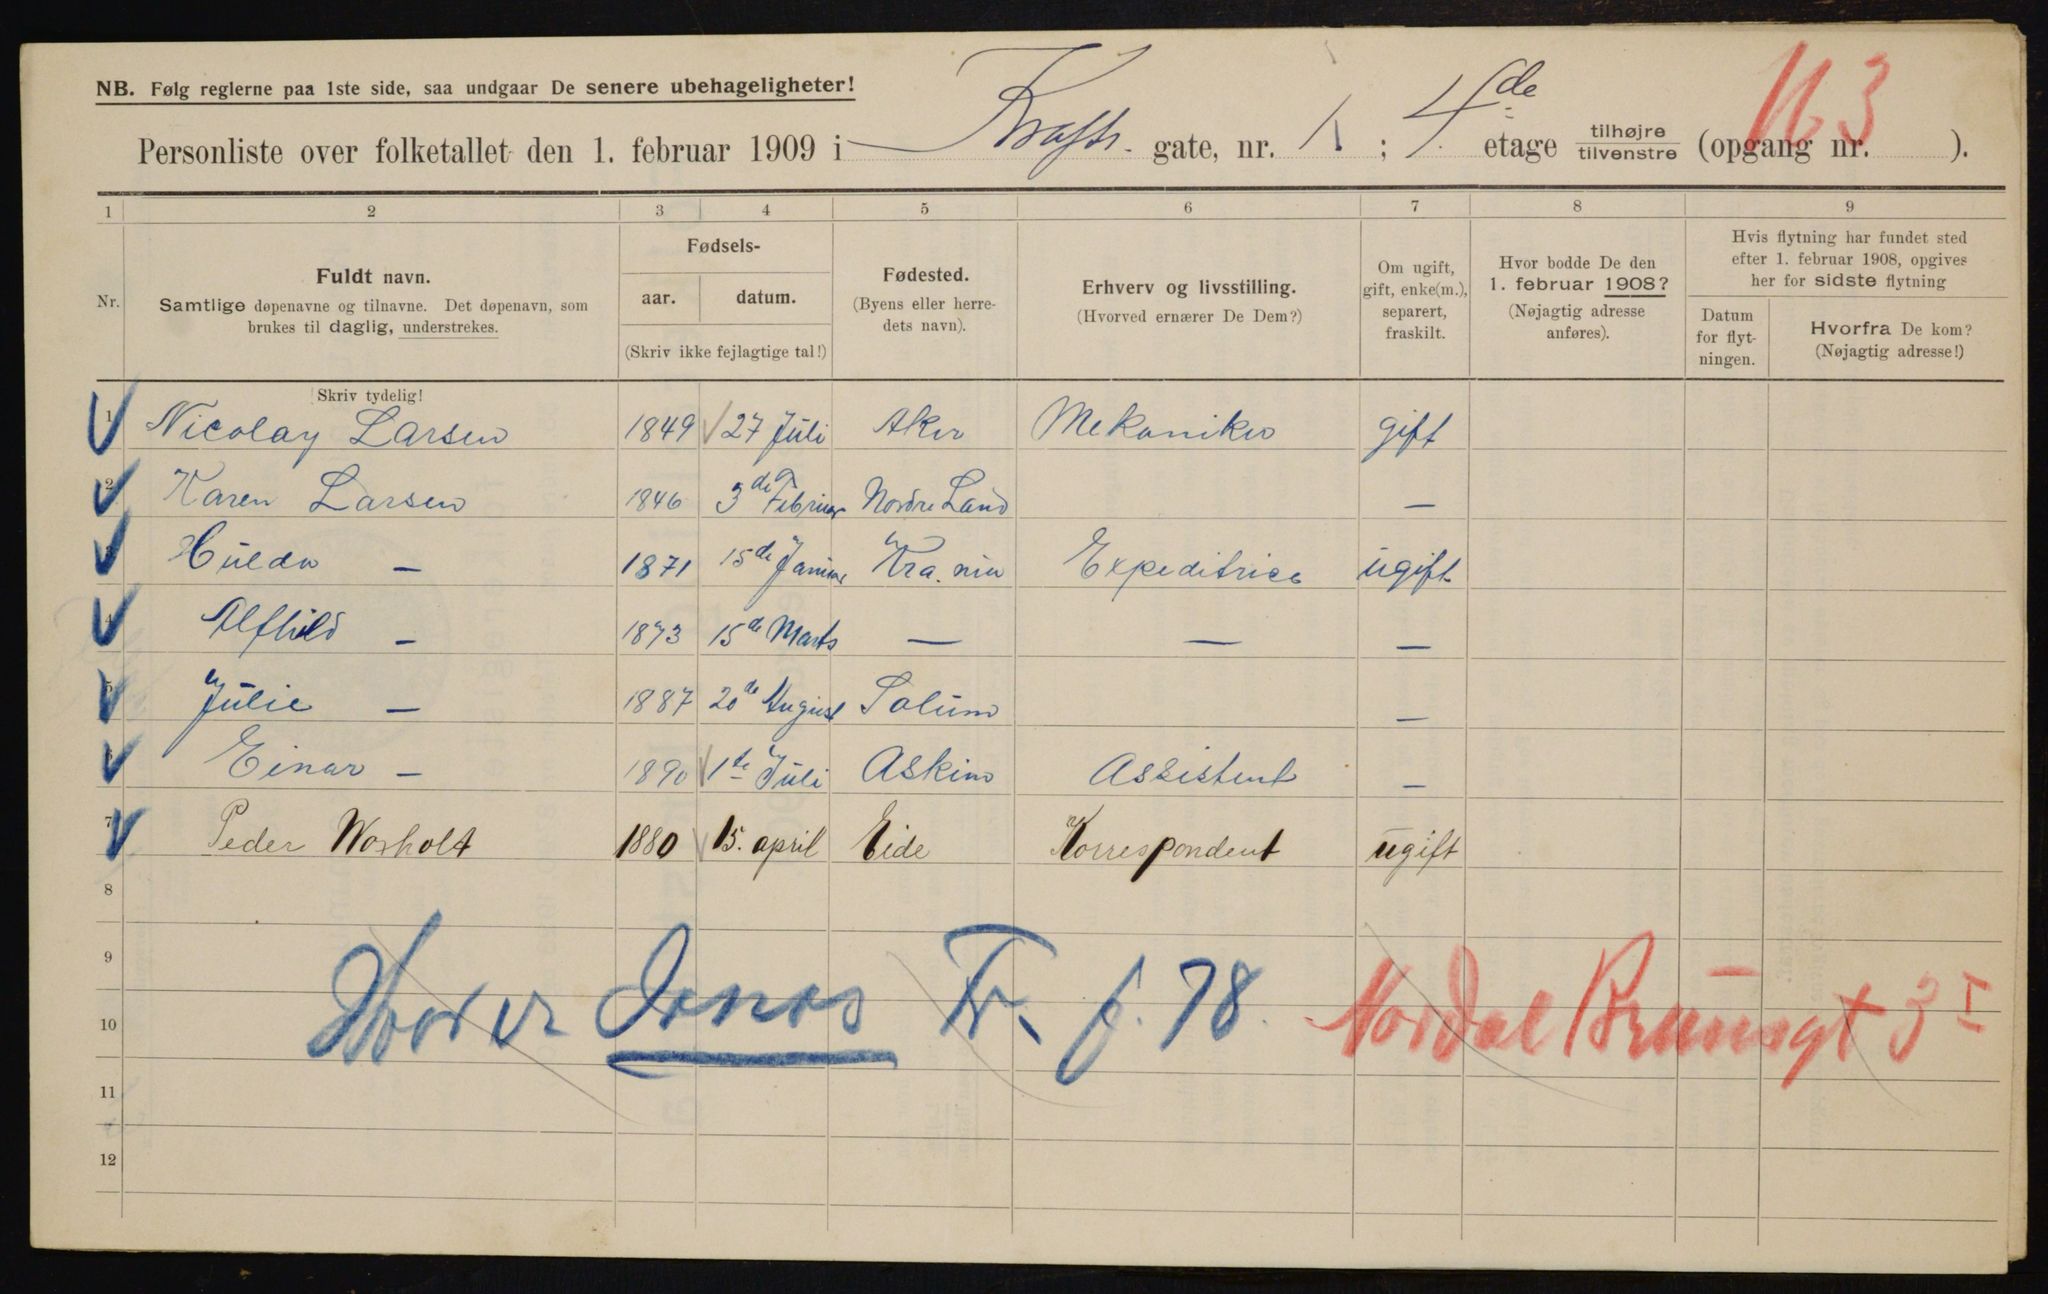 NB. Følg reglerne paa 1ste side, saa undgaar De senere ubehageligheter!
Personliste over folketallet den 1. februar 1909 i Krafts. gate, nr. 1 ; 4de etage tilhøjre tilvenstre (opgang nr. ).
1 2 3 4 5 6 7 8 9
Nr.
Fuldt navn.
Samtlige døpenavne og tilnavne. Det døpenavn, som
brukes til daglig, understrekes.
Fødsels-
aar. datum.
(Skriv ikke fejlagtige tal!)
Fødested.
(Byens eller herre-
dets navn).
Erhverv og livsstilling.
(Hvorved ernærer De Dem?)
Om ugift,
gift, enke(m.),
separert,
fraskilt.
Hvor bodde De den
1. februar 1908?
(Nøjagtig adresse
anføres).
Hvis flytning har fundet sted
efter 1. februar 1908, opgives
her for sidste flytning
Datum
for flyt-
ningen.
Hvorfra De kom?
(Nøjagtig adresse!)
Skriv tydelig!
1 Nicolay Larsen 1849 27 Juli Aker Mekaniker gift
2 Karen Larsen 1846 3de Februar Nordre Land —
3 Hulda — 1871 15de Januar Kra. nia Expeditrice ugift
4 Alfhild — 1873 15de Marts — — —
5 Julie — 1887 20de August Solum —
6 Einar — 1890 1te Juli Askim Assistent —
7 Peder Worholt 1880 15. april Eide Korrespondent ugift
8
9
Hvor er Jonas Fr. f. 78. Nordal Brunsgt 3 I
10
11
12